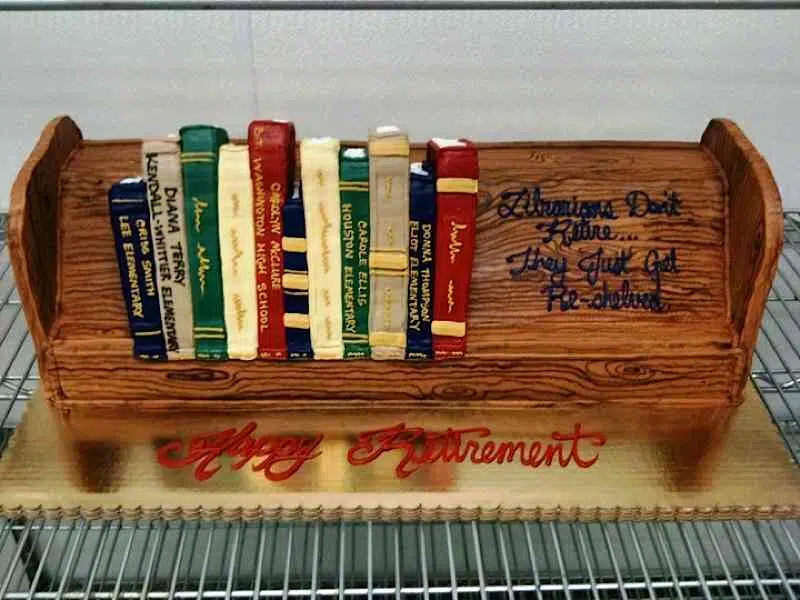 CRISS SMITH
LEE ELEMENTARY
DIANA TERRY
KENDALL-WHITTIER ELEMENTARY
CAROLYN McCLURE
B.T. WASHINGTON HIGH SCHOOL
CAROLE ELLIS
HOUSTON ELEMENTARY
DONNA THOMPSON
ELIOT ELEMENTARY
Librarians Don't
Retire...
They Just Get
Re-shelved
Happy Retirement